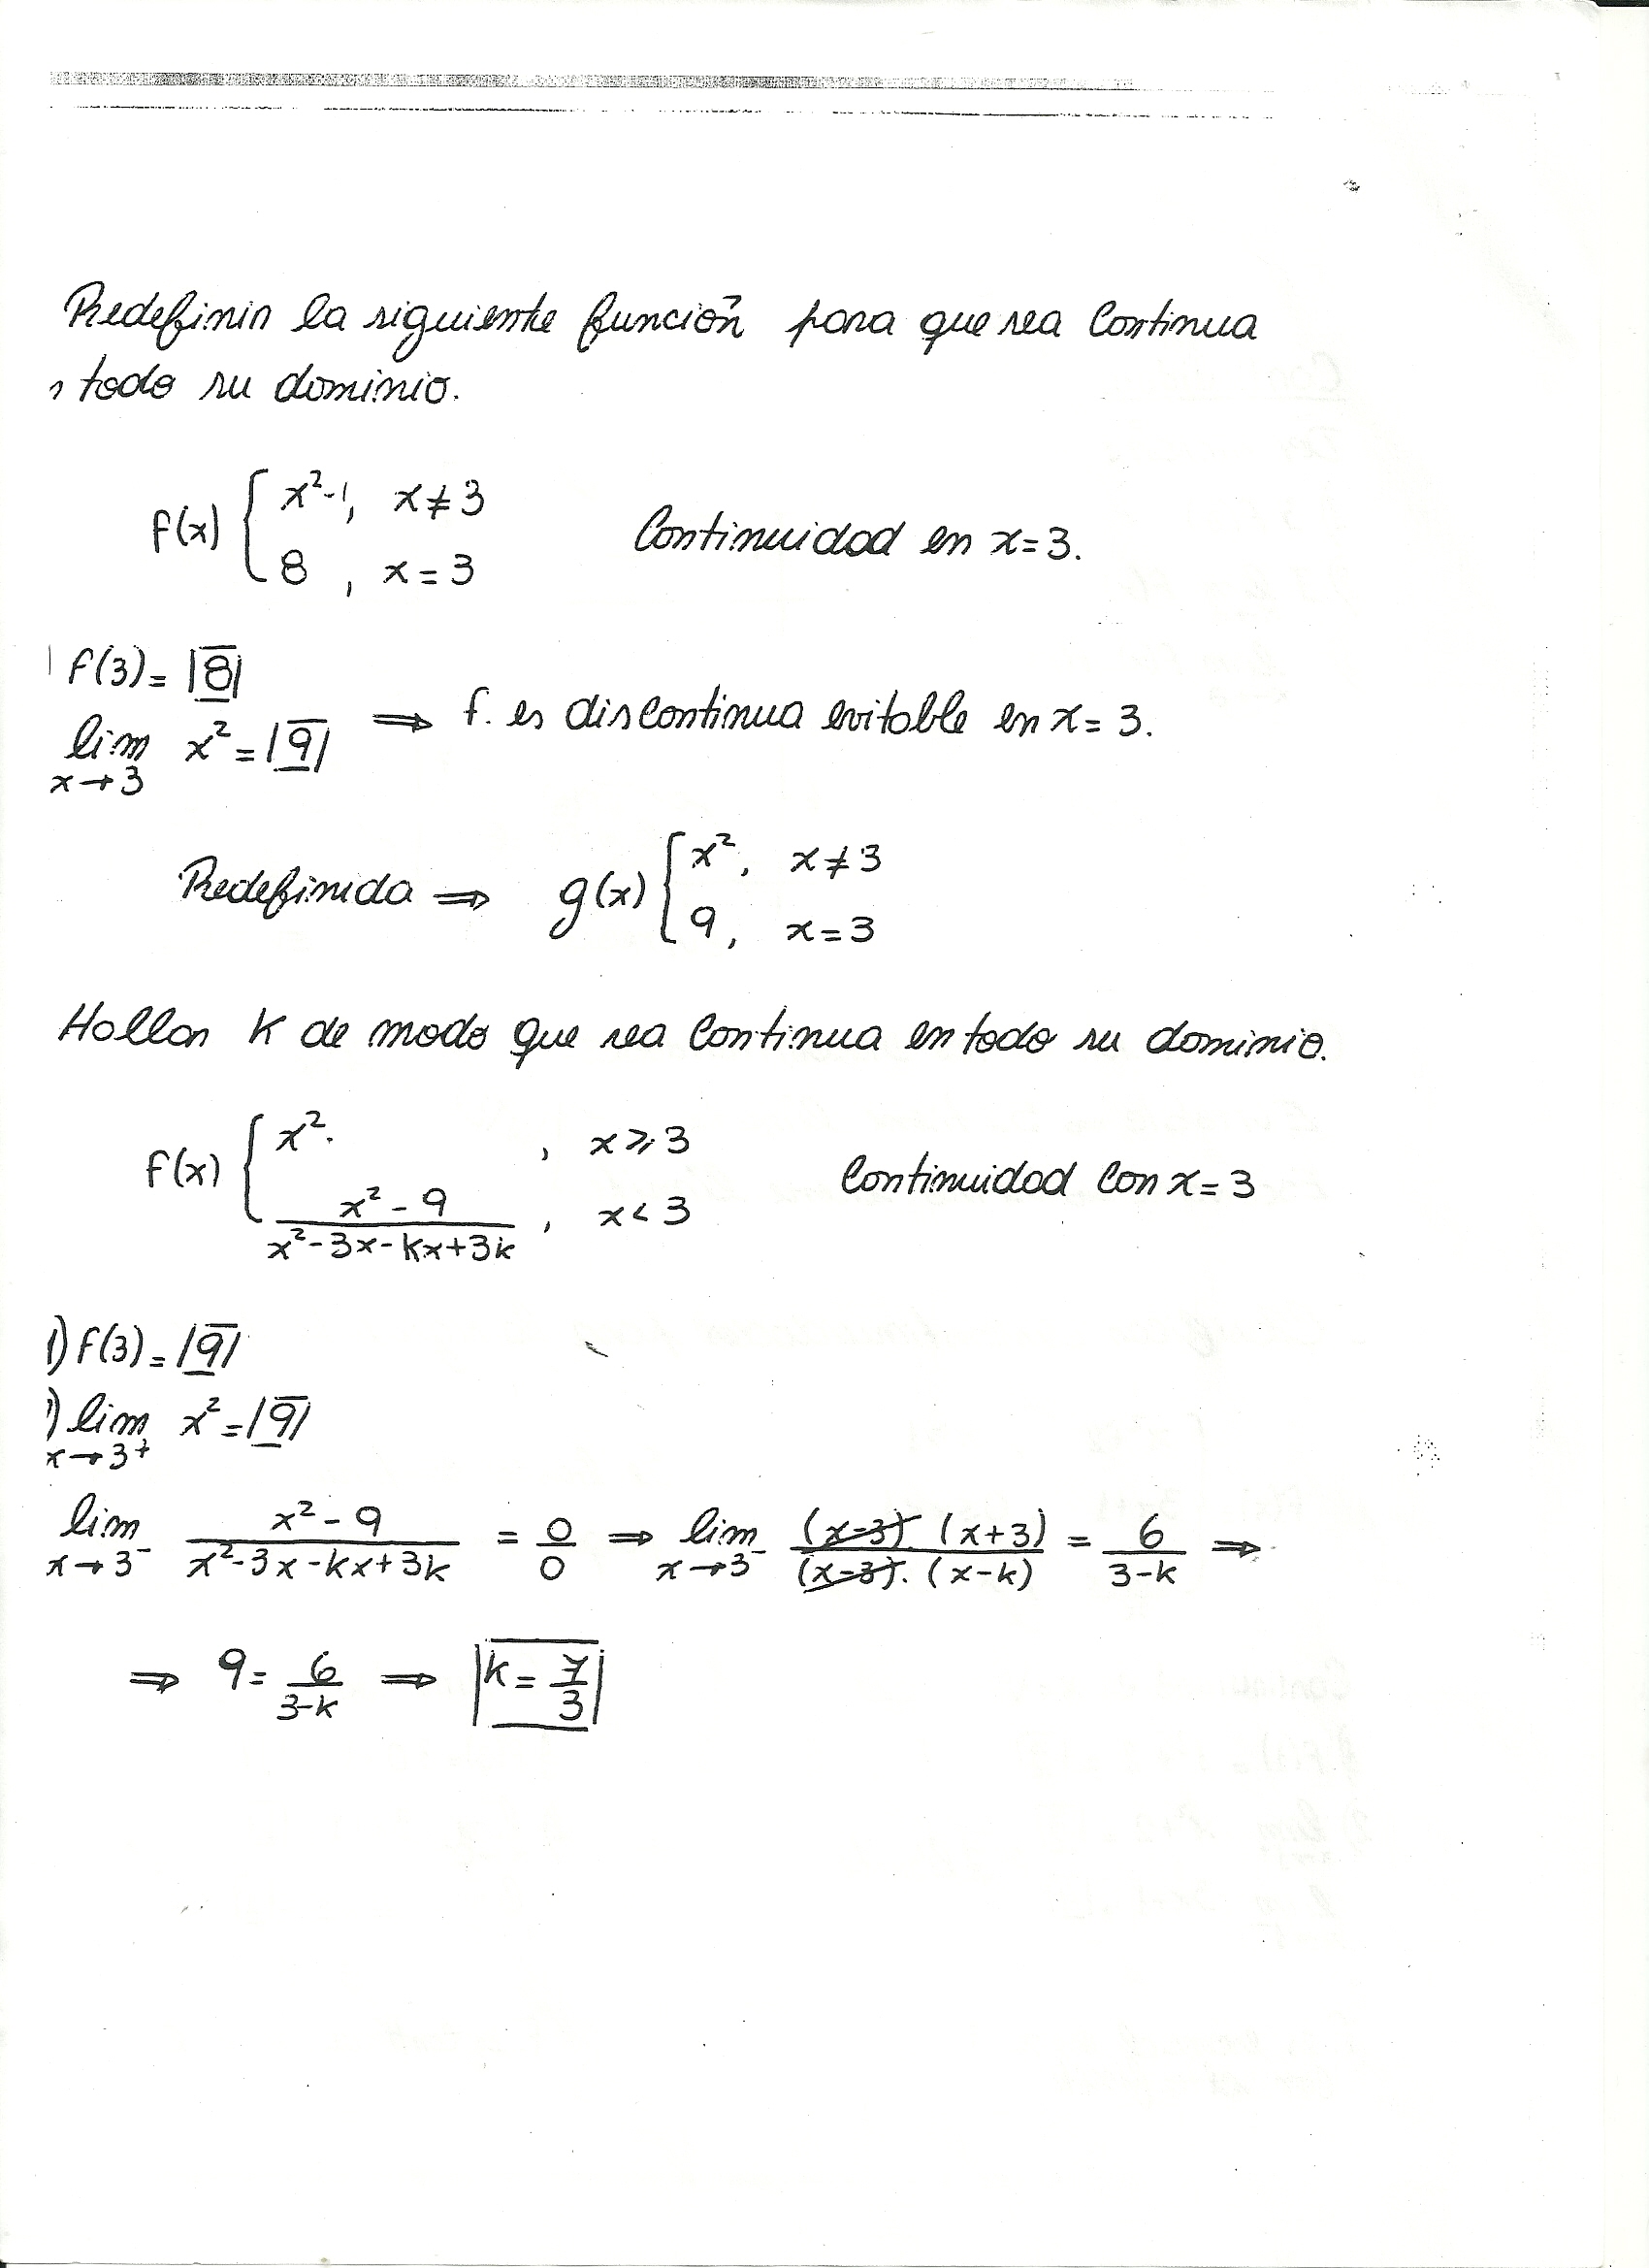 Redefinir la siguiente función para que sea continua
n todo su dominio.
f(x) { x²-1, x≠3
8, x=3
Continuidad en x=3.
f(3)= |8|
lim x→3 x² = |9| ⇒ f. es discontinua evitable en x=3.
Redefinida ⇒ g(x) { x², x≠3
9, x=3
Hallar K de modo que sea continua en todo su dominio.
f(x) { x². , x⩾3
(x²-9)/(x²-3x-kx+3k), x<3
Continuidad con x=3
1) f(3)= |9|
) lim x→3+ x² = |9|
lim x→3- (x²-9)/(x²-3x-kx+3k) = 0/0 ⇒ lim x→3- (x-3).(x+3)/(x-3).(x-k) = 6/(3-k) ⇒
⇒ 9 = 6/(3-k) ⇒ |k = 7/3|